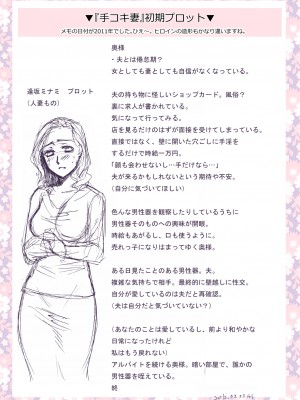 ▼『手コキ妻』初期プロット▼
メモの日付が2011年でした。ひえ～。ヒロインの造形もかなり違いますね。
奥様
・夫とは倦怠期？
女としても妻としても自信がなくなっている。
遠坂ミナミ　プロット
(人妻もの)
夫の持ち物に怪しいショップカード。風俗？
裏に求人が書かれている。
気になって行ってみる。
店を見るだけのはずが面接を受けてしまっている。
直接ではなく、壁に開いた穴ごしに手淫を
するだけで時給一万円。
「顔も会わせないし…手だけなら…」
夫が来るかもしれないという期待や不安。
(自分に気づいてほしい)
色んな男性器を観察したりしているうちに
男性器そのものへの興味が開眼。
時給もあがるし、口も使うように。
売れっ子になりはまってゆく奥様。
ある日見たことのある男性器。夫。
複雑な気持ちで相手。最終的に壁越しに性交。
自分が愛しているのは夫だと再確認。
(夫は自分だと気づいていない？)
(あなたのことは愛しているし、前より和やかな
日常になったけれど
私はもう戻れない)
アルバイトを続ける奥様。暗い部屋で、誰かの
男性器を咥えている。
終